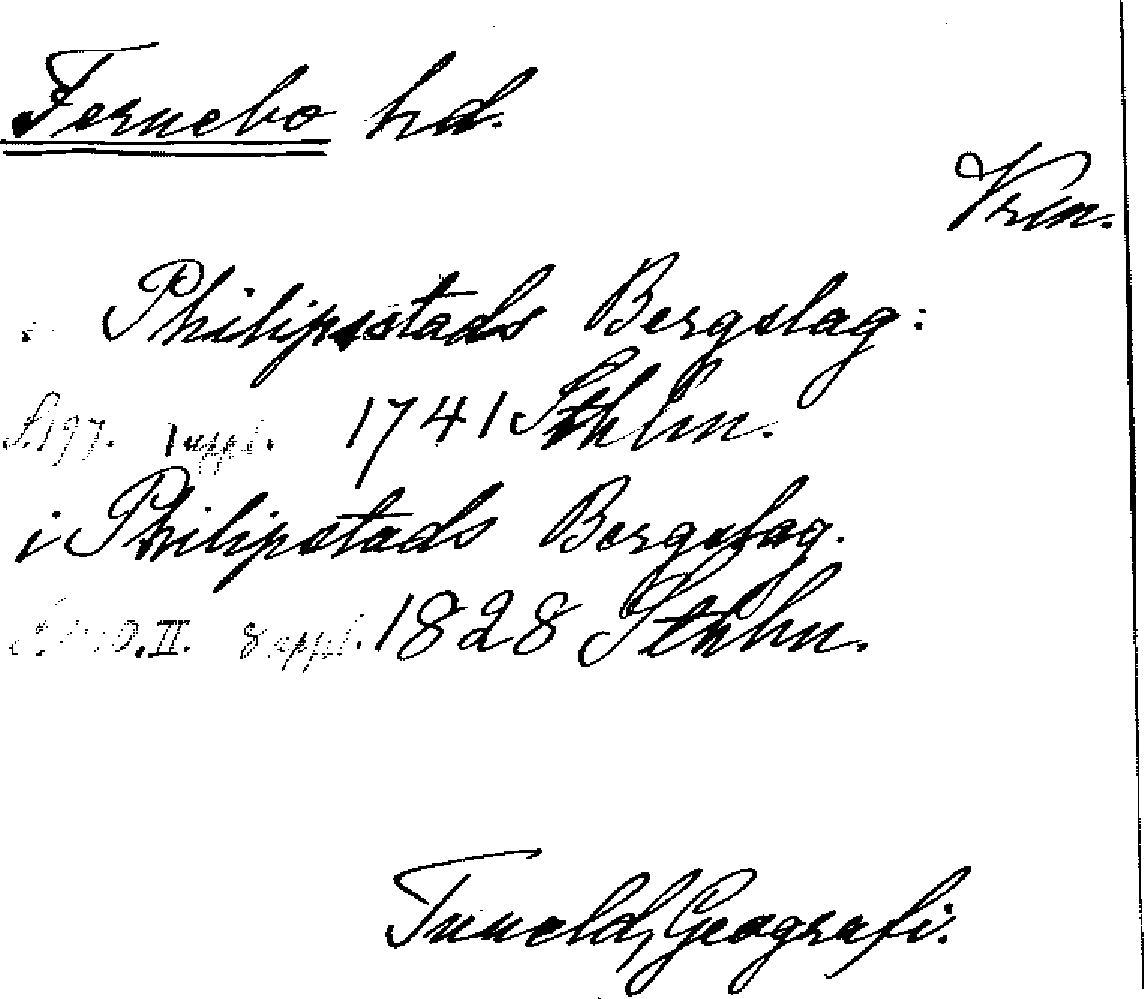 Fernebo hd.
Vrm.
i Philipsstads Bergslag:
S. 197. 1 uppl. 1741 Sthlm.
i Philipstads Bergslag.
II. 8 uppl. 1828 Sthlm.
Tuneld, Geografi.